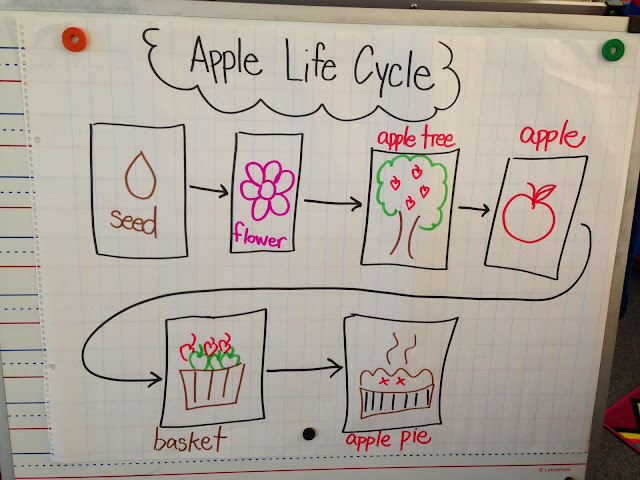 Apple Life Cycle
seed
flower
apple tree
apple
basket
apple pie
© Lakeshore